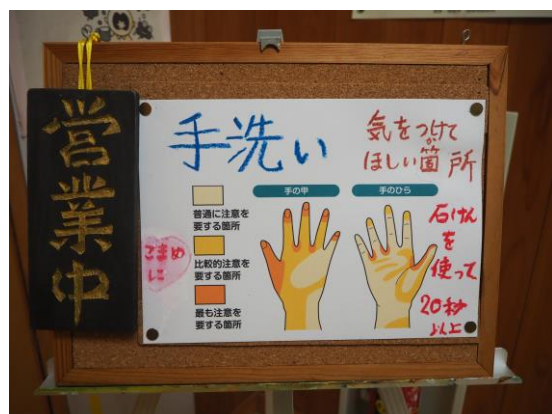 営業中
手洗い
気をつけて
ほしい箇所
手の甲
手のひら
普通に注意を
要する箇所
比較的注意を
要する箇所
最も注意を
要する箇所
こまめ
に
石けん
を
使って
20秒
以上